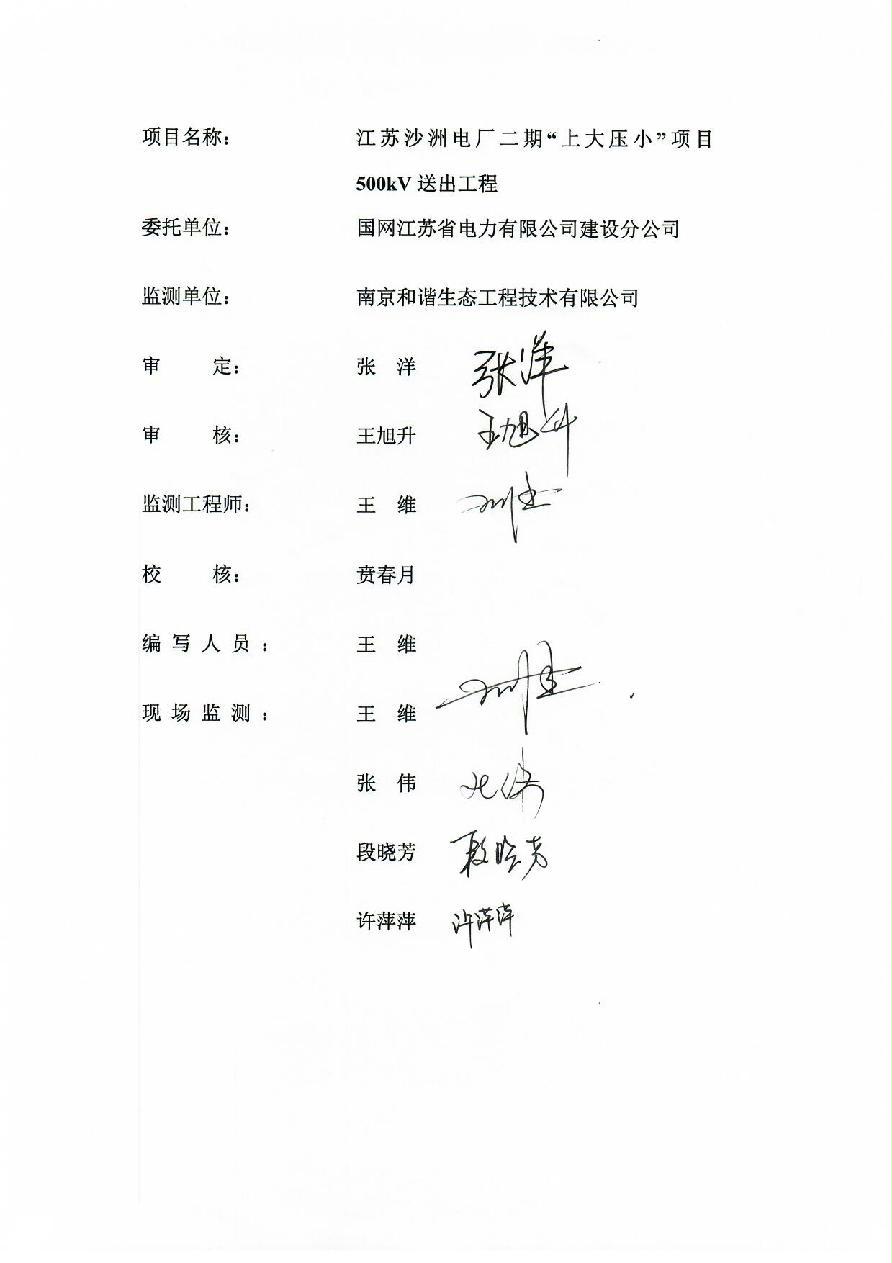 项目名称： 江苏沙洲电厂二期“上大压小”项目
500kV 送出工程
委托单位： 国网江苏省电力有限公司建设分公司
监测单位： 南京和谐生态工程技术有限公司
审 定： 张 洋 张洋
审 核： 王旭升 王旭升
监测工程师： 王 维
校 核： 贲春月
编 写 人 员 ： 王 维
现 场 监 测 ： 王 维
张 伟
段晓芳 段晓芳
许萍萍 许萍萍